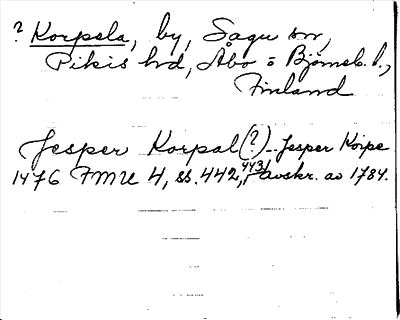 ? Korpela, by, Sagu sn,
Pikis hd, Åbo o Björneb. l.,
Finland
Jesper Korpal (?) - Jesper Korpe
1476 FMU 4, ss. 442, 443, avskr. av 1784.